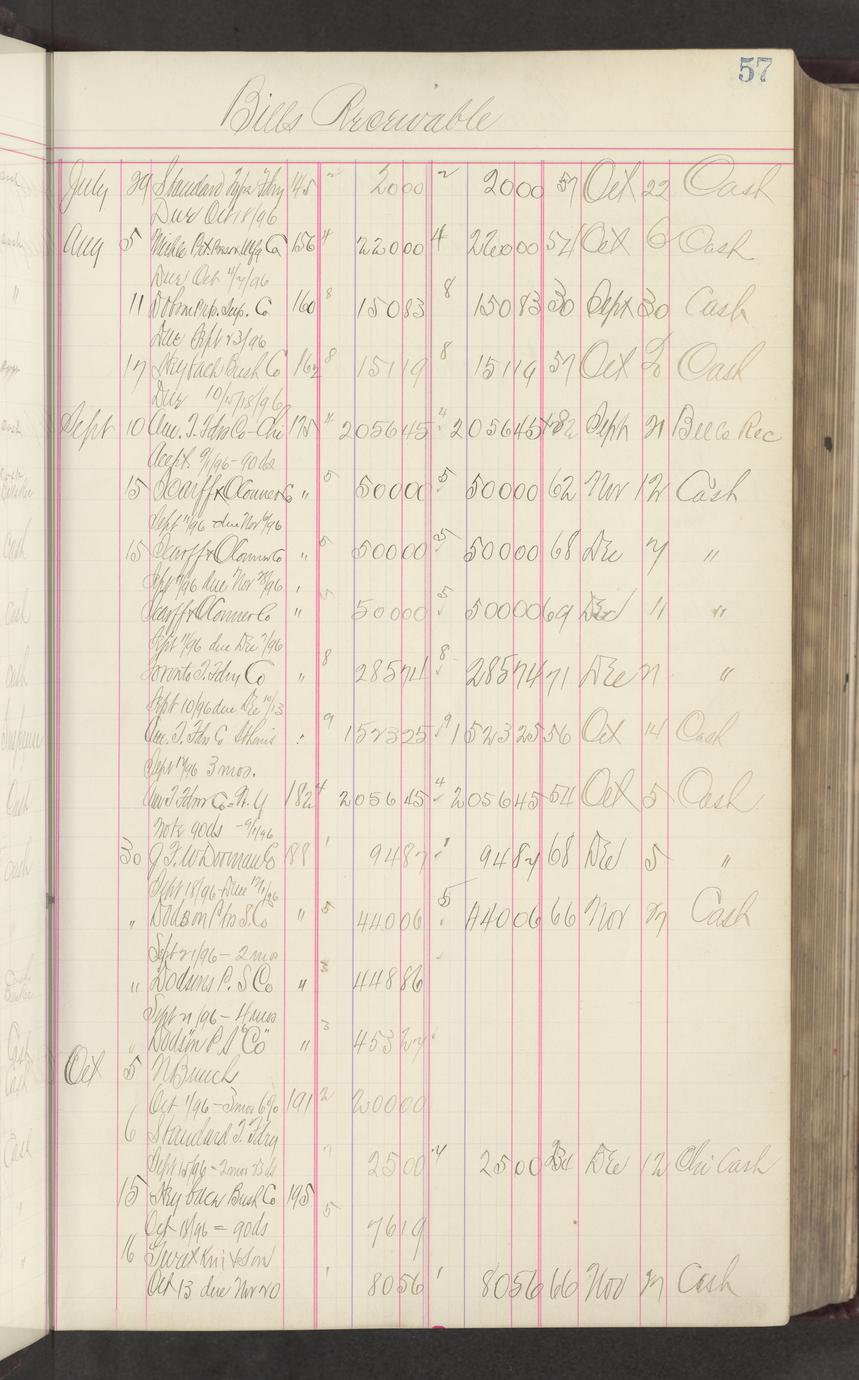 57
Bills Receivable
July 29 Standard Type Fdry 145 2 2000 2 2000 57 Oct 22 Cash
Due Oct 18/96
Aug 5 Miehle Ptg. Press Mfg Co 156 4 22000 4 22000 54 Oct 6 Cash
Due Oct 4/7/96
11 Prp. Sup. Co 160 8 15083 8 15083 30 Sept 30 Cash
Due Sept 23/96
17 Bush Co 162 8 15119 8 15119 57 Oct 20 Cash
Due 10/15/18/96
Sept 10 Am. T. Fdrs Co - Chi 175 4 205645 4 205645 182 Sept 21 Bills Rec
Accpt. 9/1/96 - 90 ds
15 Scarff & OConnor Co " 5 50000 5 50000 62 Nov 12 Cash
Sept 11/96 due Nov 6/96
15 Scarff & OConnor Co " 5 50000 5 50000 68 Dec 7 "
Sept 11/96 due Nov 96 "
Scarff & OConnor Co " 5 50000 5 50000 69 Dec 11 "
Sept 11/96 due Dec 7/96
Toronto T. Fdry Co " 8 28574 8 28574 71 Dec 21 "
Sept 10/96 due Dec 10/13
Am. T. Fdrs Co St Louis " 9 152325 9 152325 56 Oct 14 Cash
Sept 17/96 3 mos.
Am T Fdrs Co - N. Y 182 4 205645 4 205645 54 Oct 5 Cash
Note 90 ds - 9/7/96
30 J. F. W Dorman Co 188 1 9487 1 9487 68 Dec 5 "
Sept 18/96 - Due 96
" Dodson Ptrs S. Co " 5 44006 5 44006 66 Nov 27 Cash
Sept 21/96 - 2 mos
" Dodsons P. S Co " 3 44886
Sept 21/96 - 4 mos
" Dodson P S "Co" " 3 45327
Oct 5 N Bunch
Oct 1/96 - 3 mos 6% 191 2 20000
6 Standard T. Fdry
Sept 15/96 - 2 mos 2500 4 2500 Dec 12 Chi Cash
15 Bush Co 195
Oct 18/96 = 90 ds 5 7619
16 & Son
Oct 13 due Nov 20 1 8056 1 8056 66 Nov 27 Cash